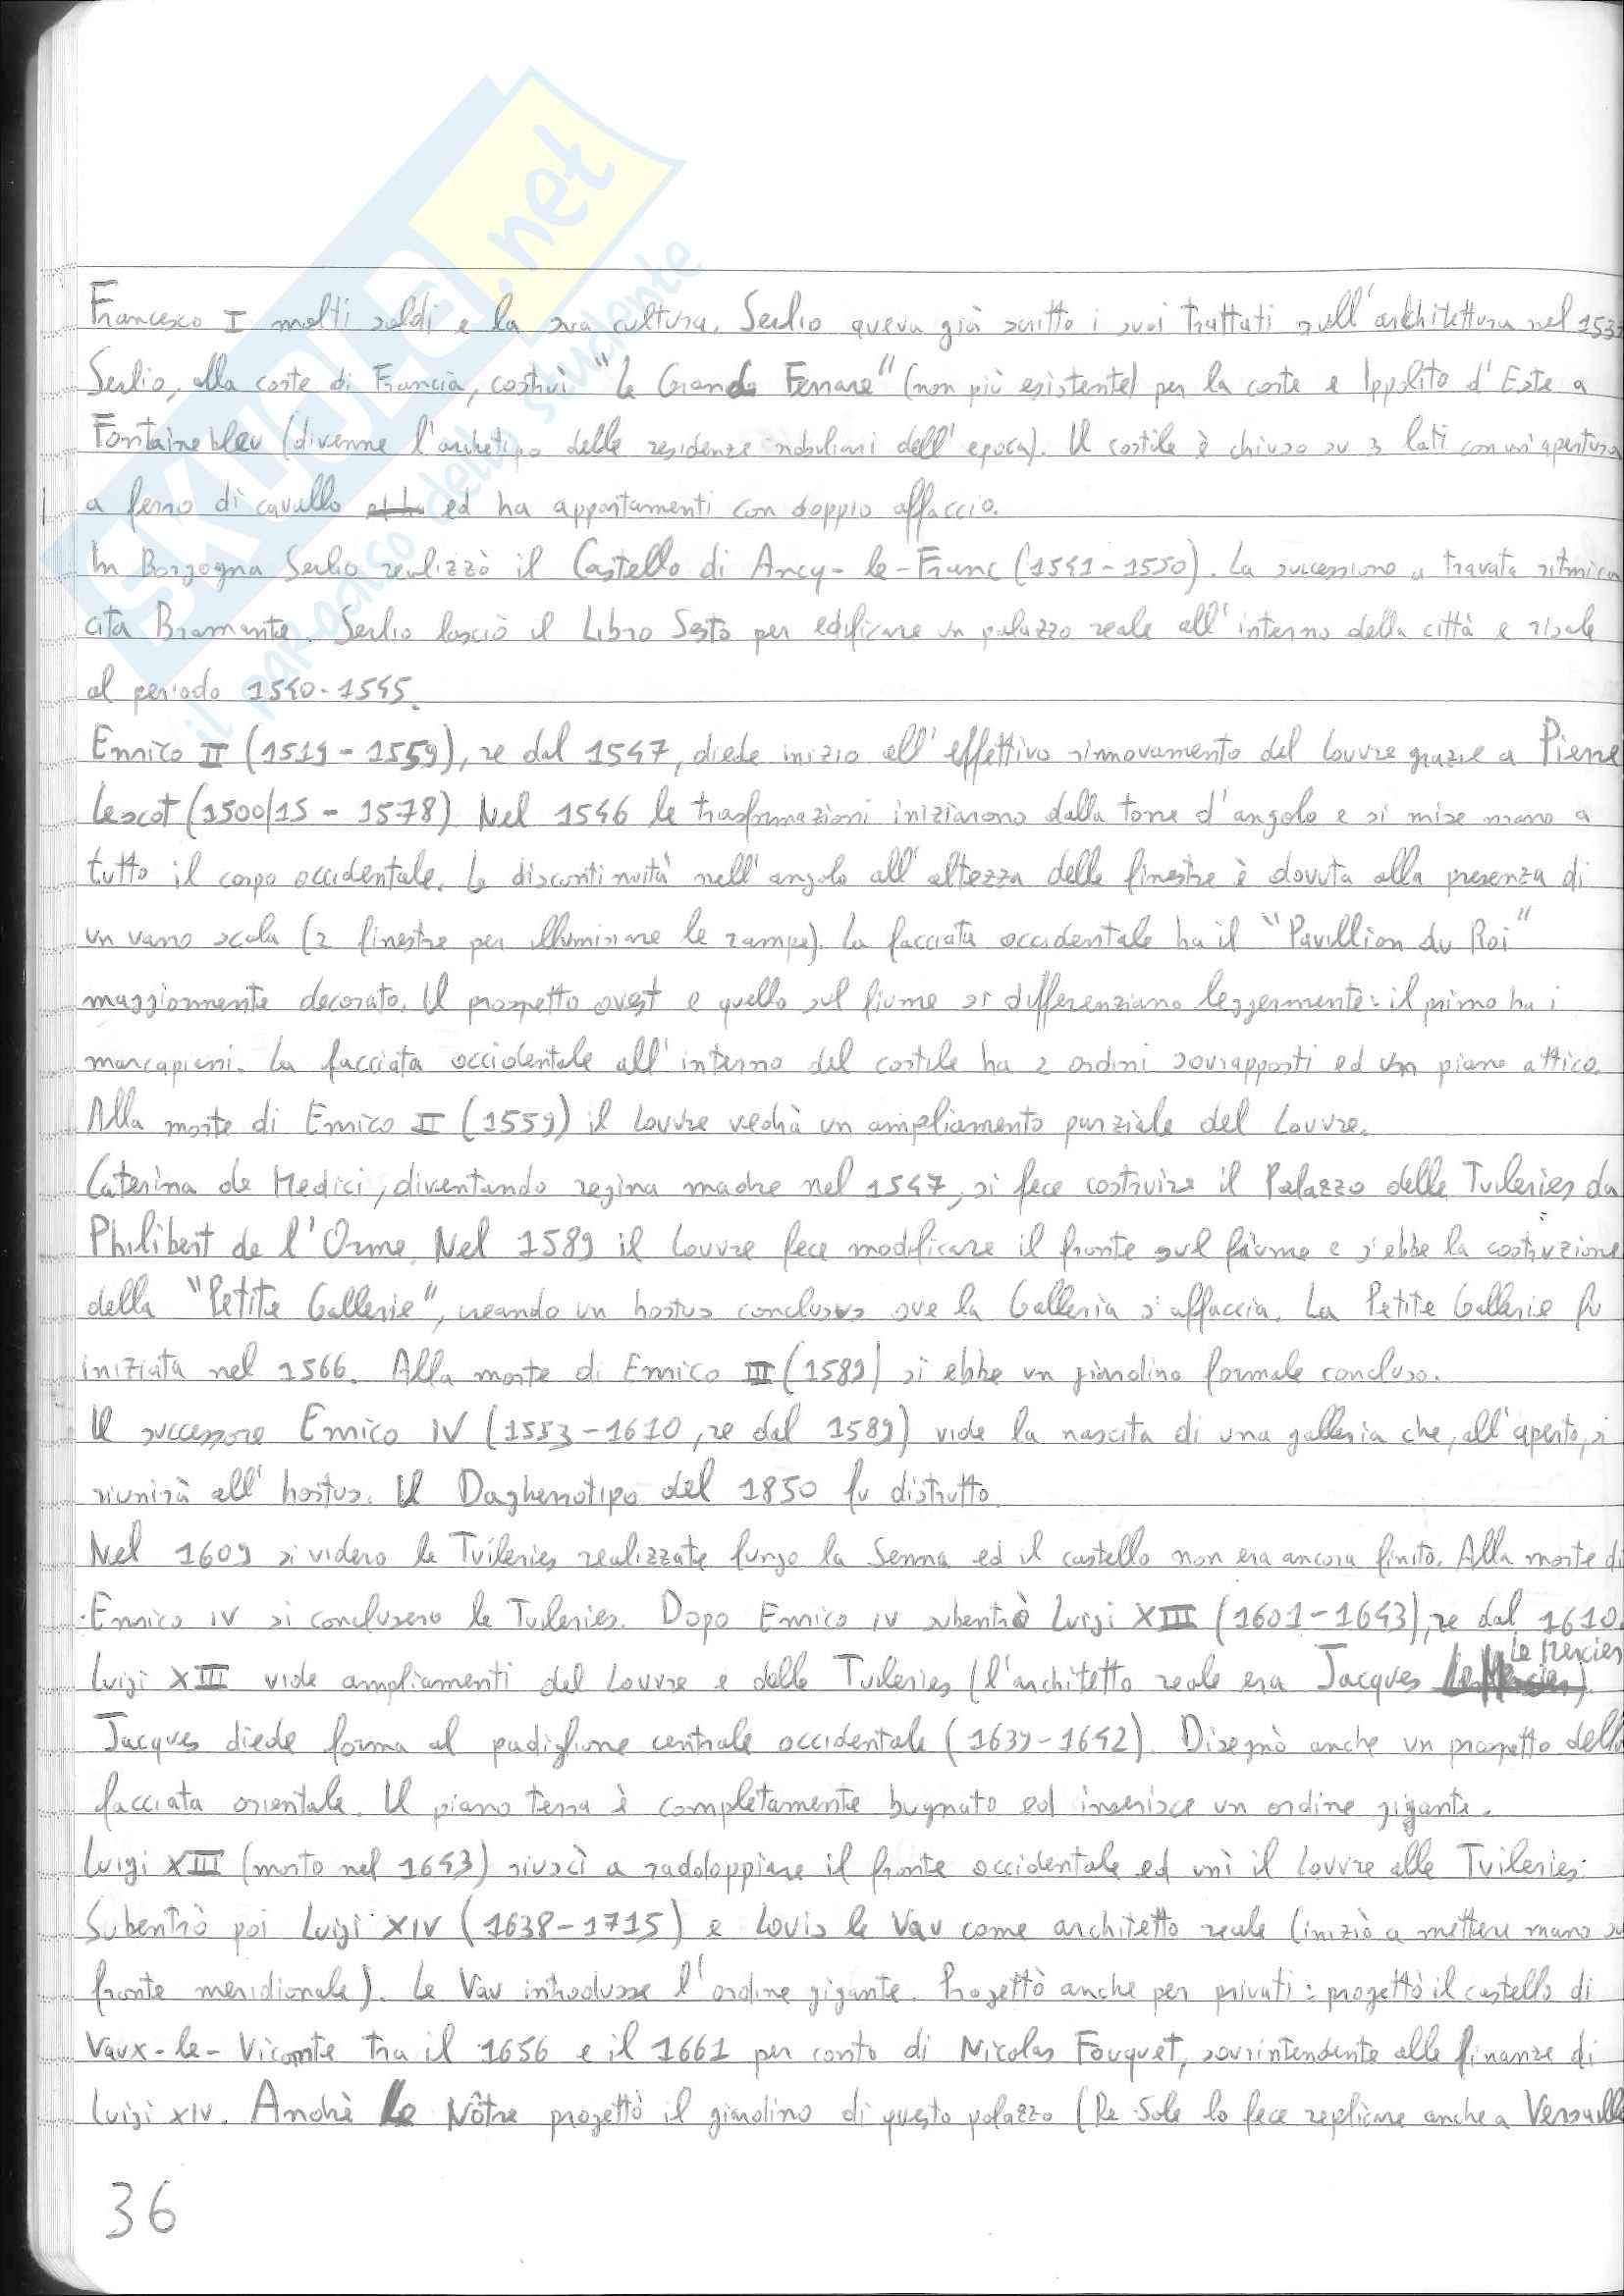 SKUOLA.net
il paradiso dello studente
Francesco I molti soldi e la sua cultura. Serlio aveva già scritto i suoi trattati sull'architettura nel 153
Serlio, alla corte di Francia, costruì "Le Grande Ferrare" (non più esistente) per la corte e Ippolito d'Este a
Fontainebleu (divenne l'archetipo delle residenze nobiliari dell'epoca). Il cortile è chiuso su 3 lati con un'apertura
a ferro di cavallo ed ha appartamenti con doppio affaccio.
In Borgogna Serlio realizzò il Castello di Ancy-le-Franc (1541-1550). La successione a travata ritmica
cita Bramante. Serlio lasciò il Libro Sesto per edificare un palazzo reale all'interno della città e risale
al periodo 1540-1545.
Enrico II (1519-1559), re dal 1547, diede inizio all'effettivo rinnovamento del Louvre grazie a Pierre
Lescot (1500/15-1578). Nel 1546 le trasformazioni iniziarono dalla torre d'angolo e si mise mano a
tutto il corpo occidentale. La discontinuità nell'angolo all'altezza delle finestre è dovuta alla presenza di
un vano scala (2 finestre per illuminare le rampe). La facciata occidentale ha il "Pavillion du Roi"
maggiormente decorato. Il prospetto ovest e quello sul fiume si differenziano leggermente: il primo ha i
marcapiani. La facciata occidentale all'interno del cortile ha 2 ordini sovrapposti ed un piano attico.
Alla morte di Enrico II (1559) il Louvre vedrà un ampliamento parziale del Louvre.
Caterina de Medici, diventando regina madre nel 1547, si fece costruire il Palazzo delle Tuileries da
Philibert de l'Orme. Nel 1589 il Louvre fece modificare il fronte sul fiume e s'ebbe la costruzione
della "Petite Gallerie", creando un hortus conclusus ove la Galleria s'affaccia. La Petite Gallerie fu
iniziata nel 1566. Alla morte di Enrico III (1589) si ebbe un giardino formale concluso.
Il successore Enrico IV (1553-1610, re dal 1589) vide la nascita di una galleria che, all'aperto, si
riunirà all'hortus. Il Dagherrotipo del 1850 fu distrutto.
Nel 1609 si videro le Tuileries realizzate lungo la Senna ed il castello non era ancora finito. Alla morte di
Enrico IV si conclusero le Tuileries. Dopo Enrico IV subentrò Luigi XIII (1601-1643), re dal 1610.
Luigi XIII vide ampliamenti del Louvre e delle Tuileries (l'architetto reale era Jacques Le Mercier).
Jacques diede forma al padiglione centrale occidentale (1639-1642). Disegnò anche un prospetto della
facciata orientale. Il piano terra è completamente bugnato ed inserisce un ordine gigante.
Luigi XIII (morto nel 1643) riuscì a raddoppiare il fronte occidentale ed unì il Louvre alle Tuileries.
Subentrò poi Luigi XIV (1638-1715) e Louis le Vau come architetto reale (iniziò a mettere mano su
fronte meridionale). Le Vau introdusse l'ordine gigante. Progettò anche per privati: progettò il castello di
Vaux-le-Vicomte tra il 1656 e il 1661 per conto di Nicolas Fouquet, sovrintendente alle finanze di
Luigi XIV. Andrè Le Nôtre progettò il giardino di questo palazzo (Re Sole lo fece replicare anche a Versaille
36